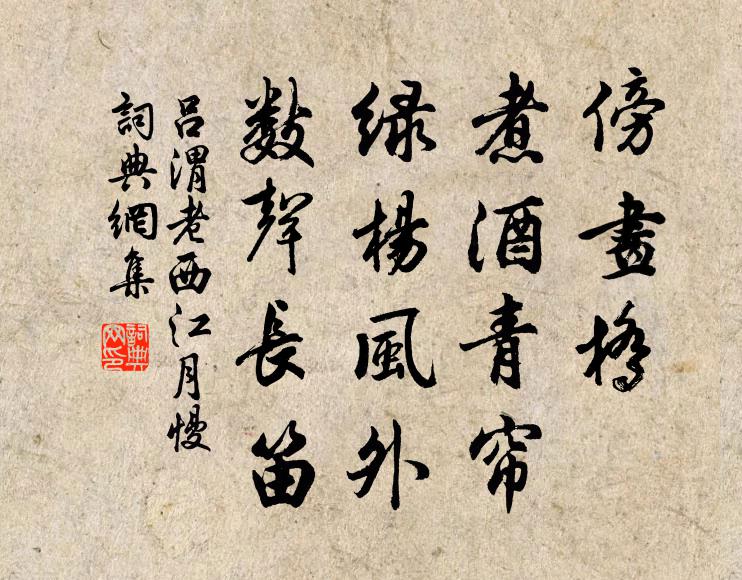 傍畫橋
煮酒青帘
緑楊風外
數聲長笛
吕渭老西江月慢
詞典網集
詞典
网印